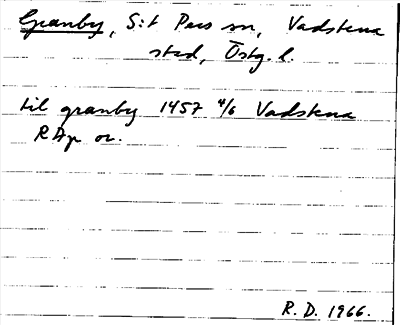 Granby, S:t Pers sn, Vadstena
stad, Östg. l.
til granby 1457 4/6 Vadstena
RAp or.
R. D. 1966.